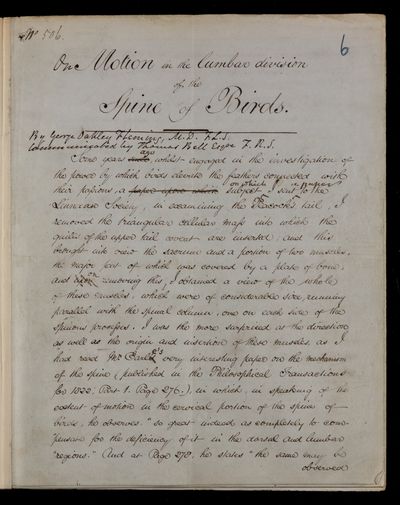 No 506.
6
On Motion in the lumbar division
of the
Spine of Birds.
By George Oakley Fleming, M.D. F.L.S.
Communicated by Thomas Bell Esqre F.R.S.
ago
Some years since, whilst engaged in the investigation of
the power by which birds elevate the feathers connected with
on which a paper
their passions, a subject I sent to the
Linnean Society, in examining the Peacock's tail, I
removed the triangular cellular mass into which the
quills of the upper tail covert are inserted, and this
brought into view the sacrum and a portion of two muscles,
the major part of which was covered by a plate of bone,
on
and upon removing this, I obtained a view of the whole
of these muscles, which were of considerable size, running
parallel with the spinal column, one on each side of the
spinous processes. I was the more surprised at the direction
as well as the origin and insertion of these muscles, as I
had read Mr Earle's very interesting paper on the mechanism
of the spine, (published in the Philosophical Transactions
for 1822; Part 1. Page 276.), in which, in speaking of the
extent of motion in the cervical portion of the spine of
birds, he observes, "so great indeed as completely to com-
pensate for the deficiency of it in the dorsal and lumbar
"regions." And at Page 278. he states "the same may be
observed